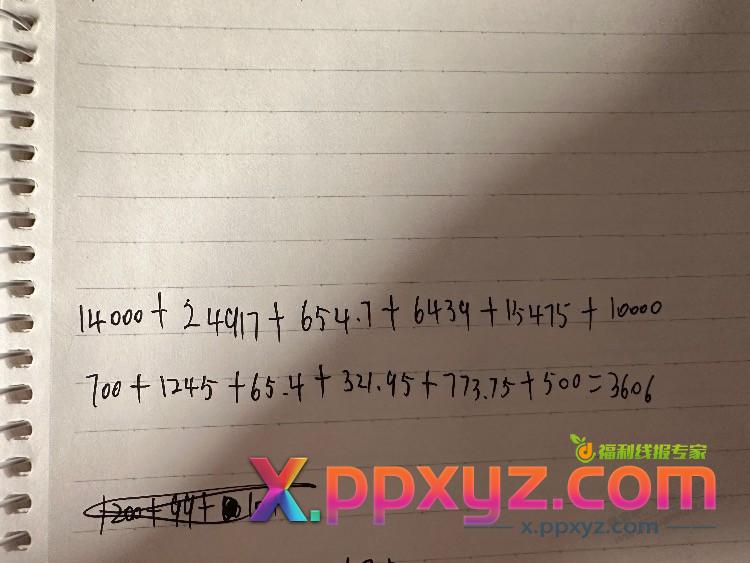 14000+24917+654.7+6439+15475+10000
700+1245+65.4+321.95+773.75+500=3606
福利线报专家
x.ppxyz.com
x.ppxyz.com